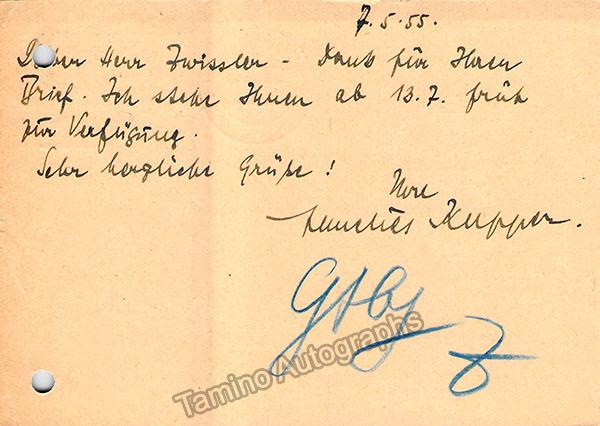 7.5.55.
Lieber Herr Zwissler - Dank für Ihren
Brief. Ich stehe Ihnen ab 13.7. früh
zur Verfügung.
Sehr herzliche Grüße!
Ihre
Annelies Kupper.
Tamino Autographs